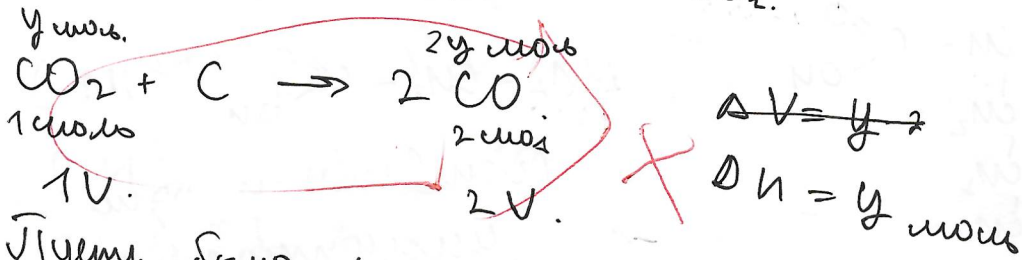 y моль. 2y моль
CO2 + C → 2 CO
1 моль 2 мол
1V. 2V.
ΔV = y
Δn = y моль
Пусть было